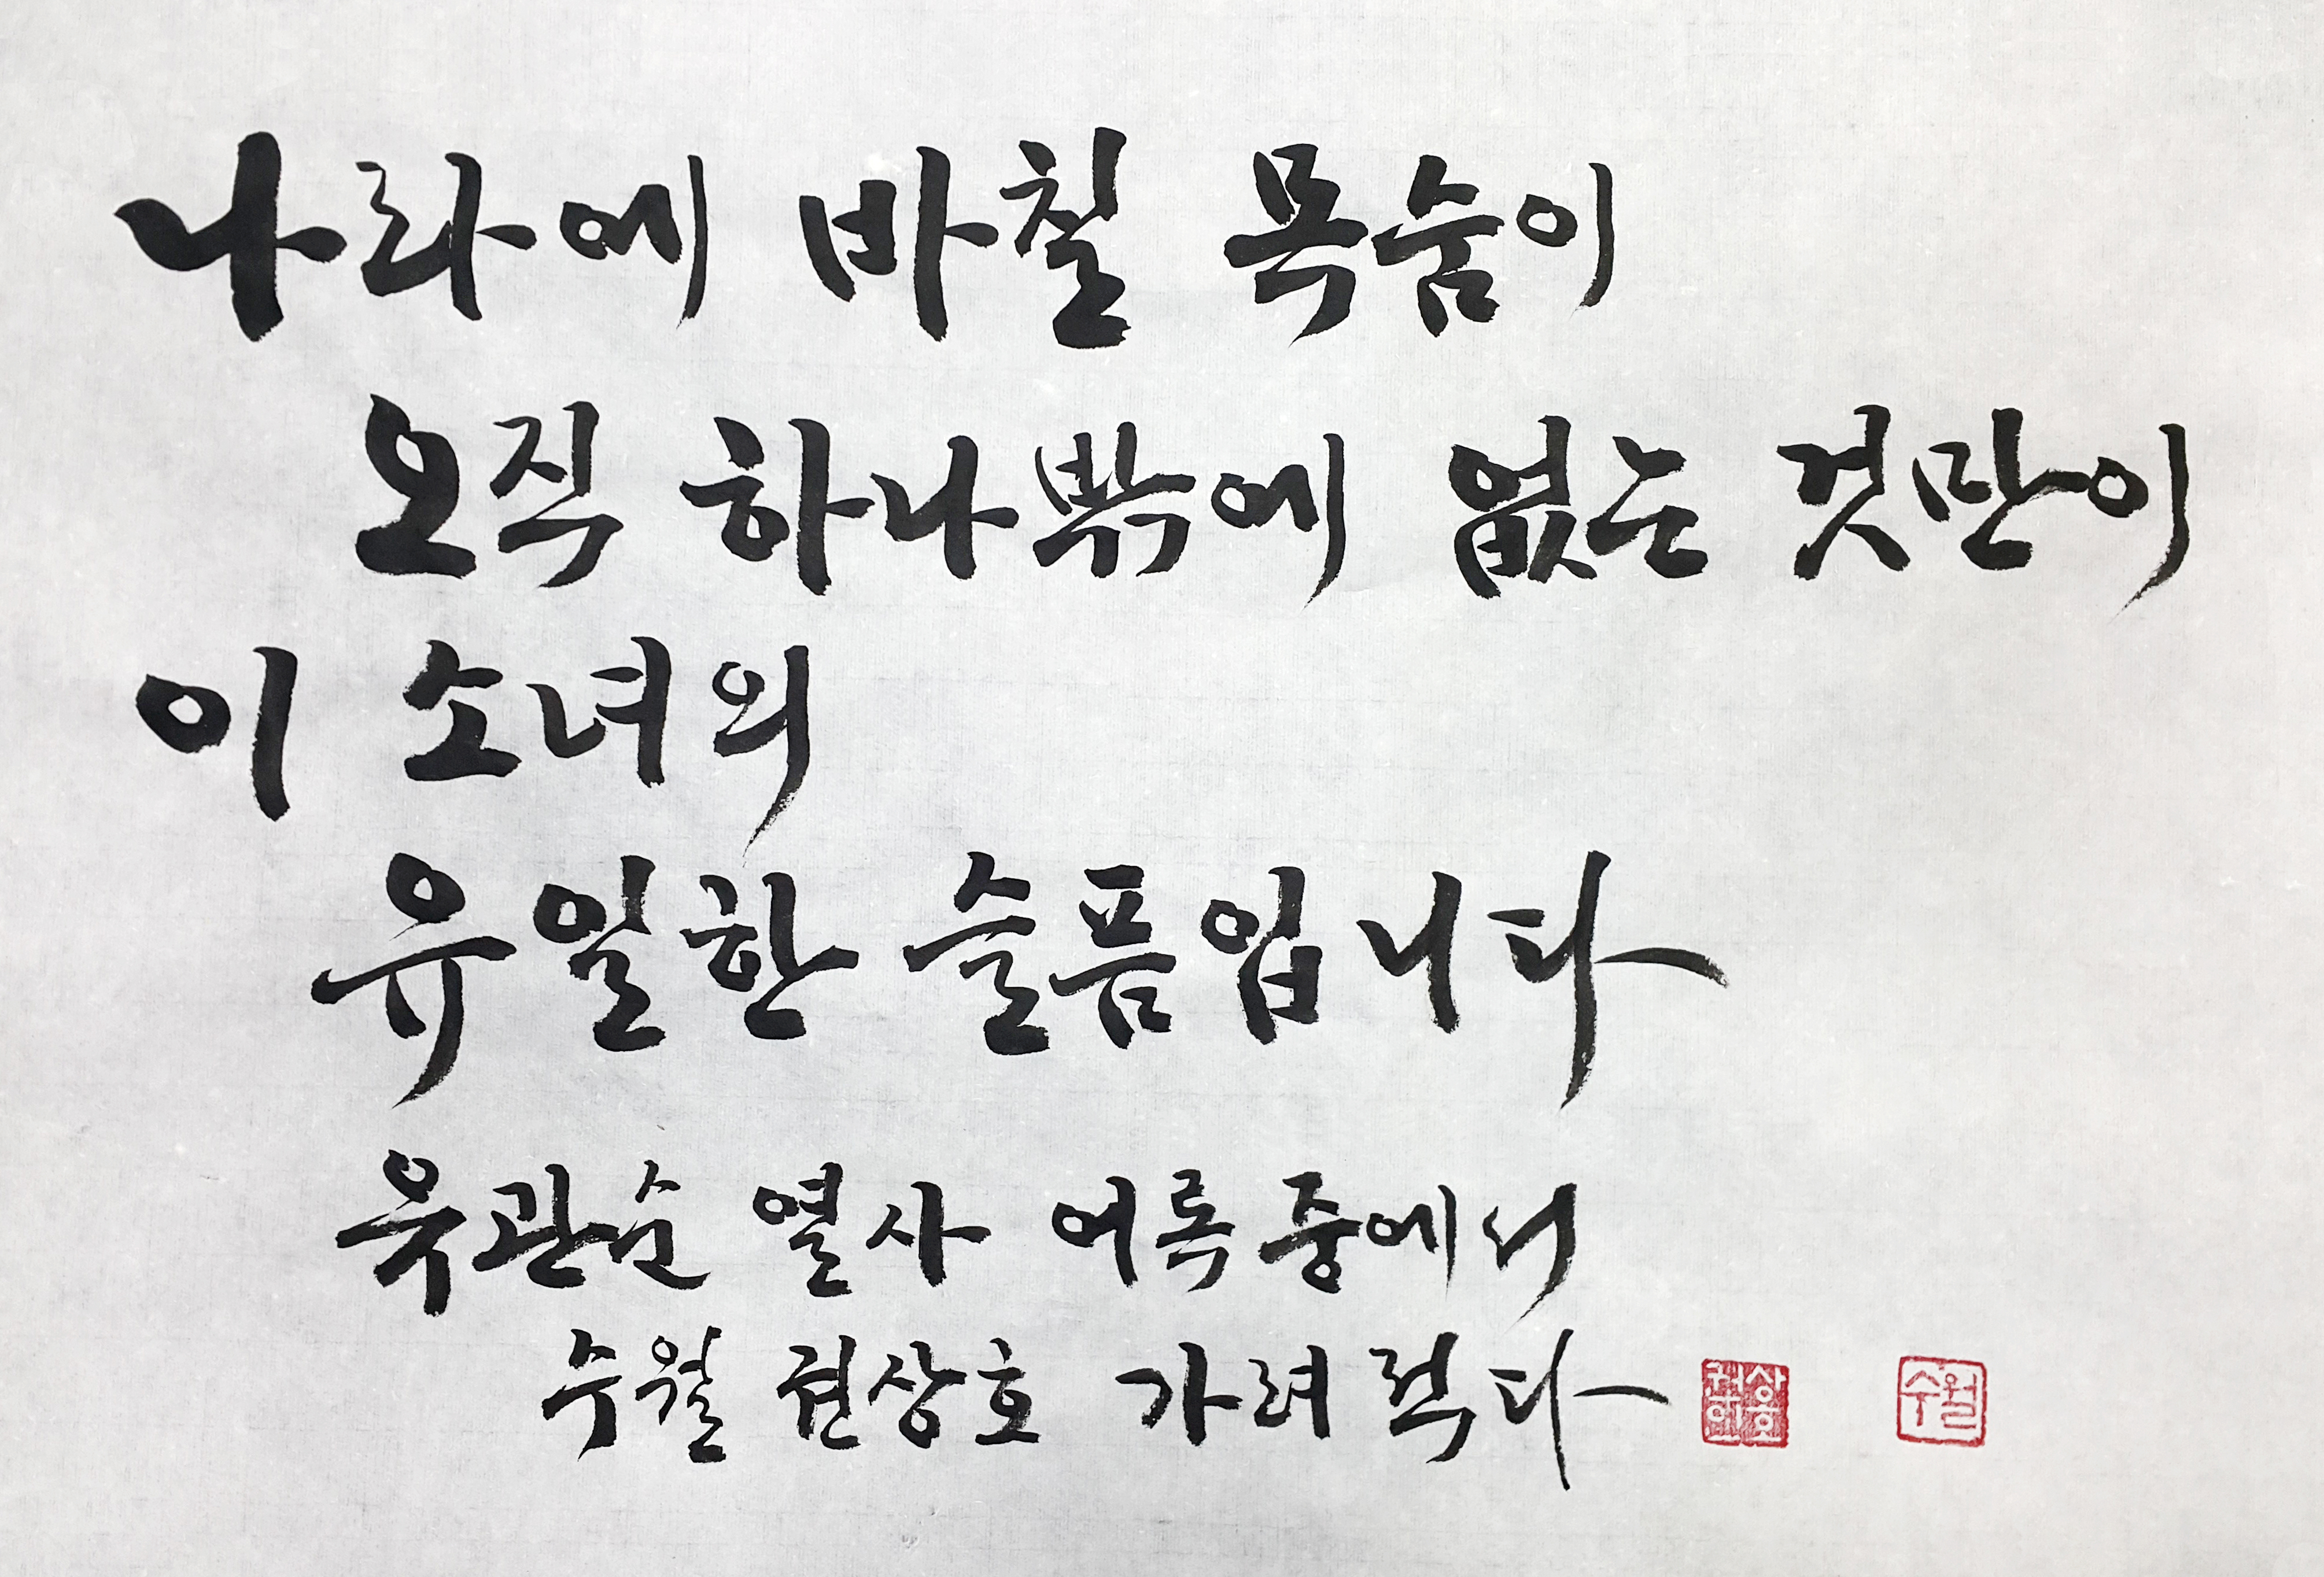 나라에 바칠 목숨이
오직 하나밖에 없는 것만이
이 소녀의
유일한 슬픔입니다
유관순 열사 어록중에서
수월 권상호 가려 적다
수월